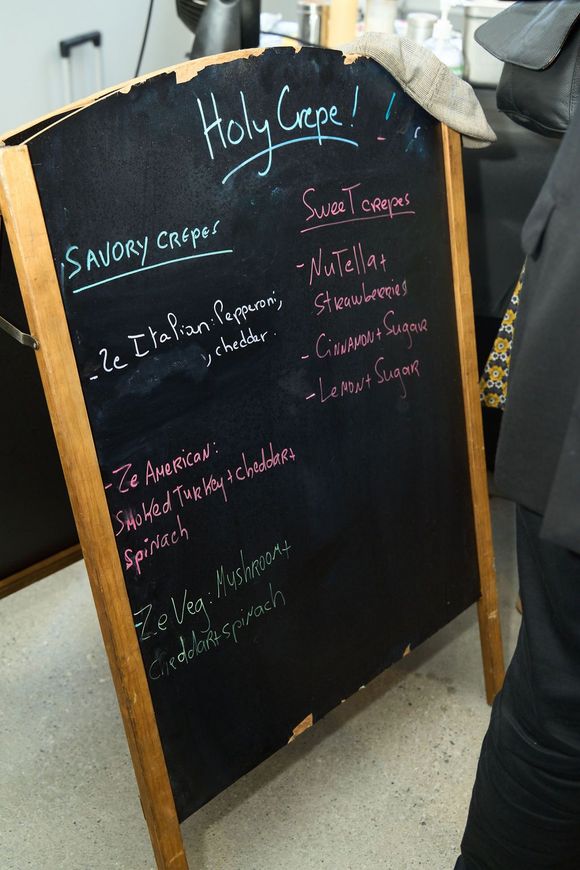 Holy Crepe!
SAVORY CREPES
- Ze Italian: Pepperoni,
, cheddar.
- Ze AMERICAN:
Smoked Turkey + cheddar +
spinach
- Ze Veg: Mushroom +
cheddar + spinach
Sweet crepes
- Nutella +
strawberries
- Cinnamon + Sugar
- Lemon + Sugar